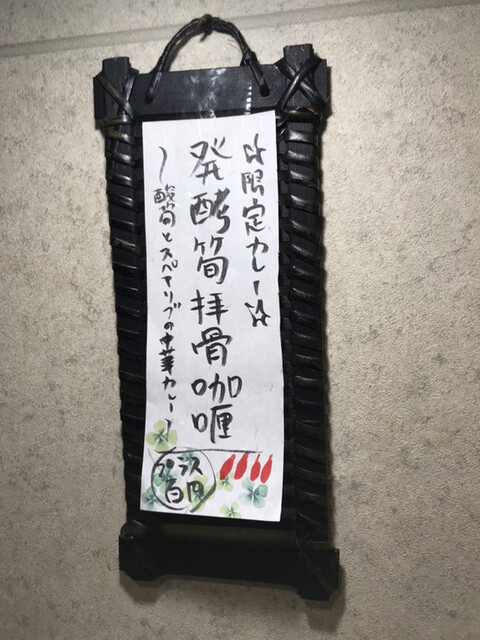 ☆限定カレー☆
発酵筍拝骨咖喱
〜酸筍とスペアリブの中華カレー〜
プラス
百円